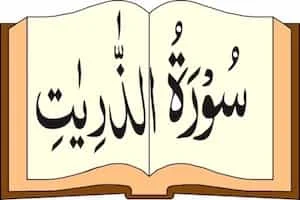 سُوْرَةُ الذّٰرِيٰتِ